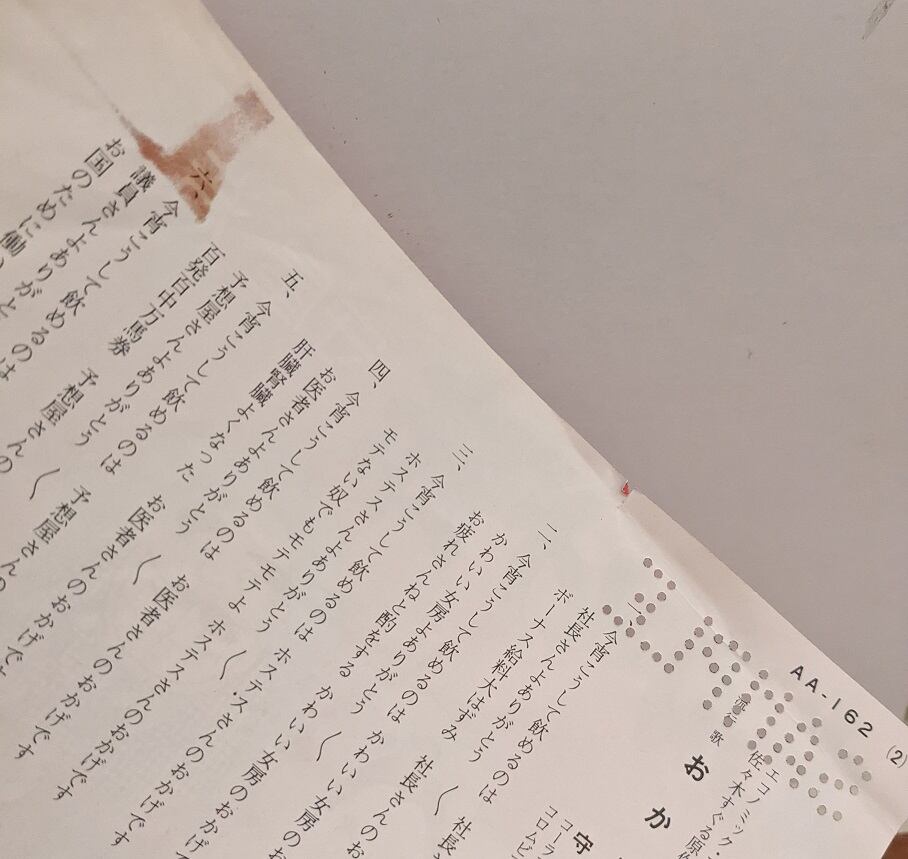 AA-162
(2)
エコノミック・
佐々木すぐる原
流行歌
おか
守
コーラ
コロムビ
一、今宵こうして飲めるのは
社長さんよありがとう
ボーナス給料大はずみ 社長さんのお
〱 社長
二、今宵こうして飲めるのは
かわいい女房よありがとう
お疲れさんねと酌をする かわいい女房のお
〱 かわいい女房のおかげ
三、今宵こうして飲めるのは
ホステスさんよありがとう
モテない奴でもモテモテよ ホステスさんのおかげです
〱 ホステスさんのおかげです
四、今宵こうして飲めるのは
お医者さんよありがとう
肝臓腎臓よくなった お医者さんのおかげです
〱 お医者さんのおかげです
五、今宵こうして飲めるのは
予想屋さんよありがとう
百発百中万馬券 予想屋さんの
〱 予想屋さんの
六、今宵こうして飲めるのは
議員さんよありがと
お国のために働